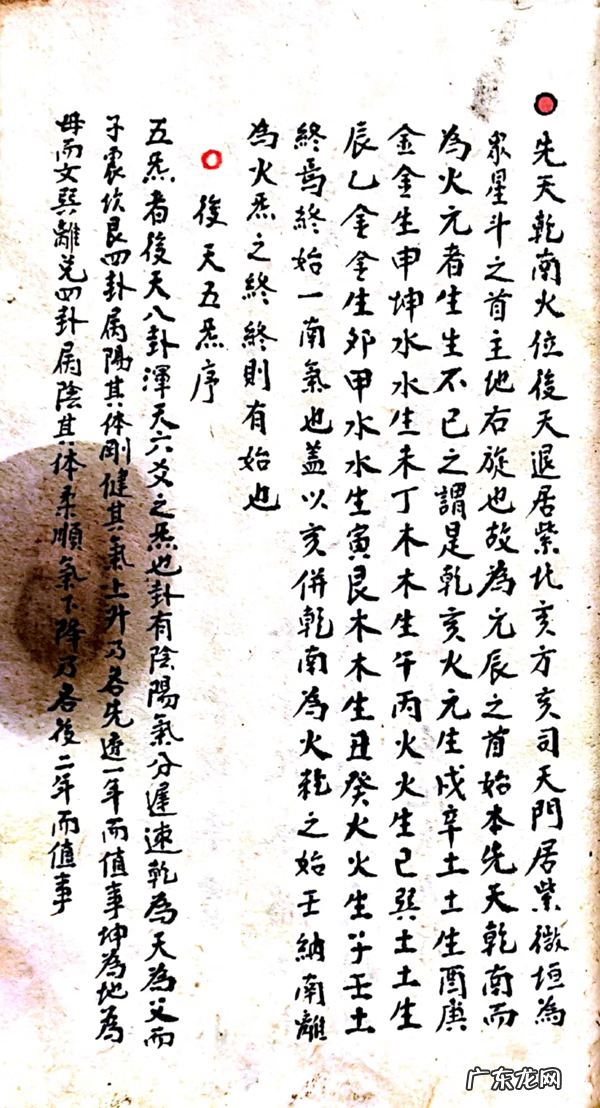 先天乾南火位後天退居紫北亥方亥司天門居紫微垣為
衆星斗之首主地右旋也故為元辰之首始本先天乾南而
為火元者生生不已之謂是乾亥火元生戌辛土土生酉庚
金金生申坤水水生未丁木木生午丙火火生巳巽土土生
辰乙金金生卯甲水水生寅艮木木生丑癸火火生子壬土
終焉終始一南氣也蓋以亥併乾南為火乾之始壬納南離
為火炁之終終則有始也
後天五炁序
五炁者後天八卦渾天六爻之炁也卦有陰陽氣分遲速乾為天為父而
子震坎艮四卦属陽其体剛健其氣上升乃各先一年而值事坤為地為
母而女巽離兑四卦属陰其体柔順氣下降乃各後二年而值事
广东龙网